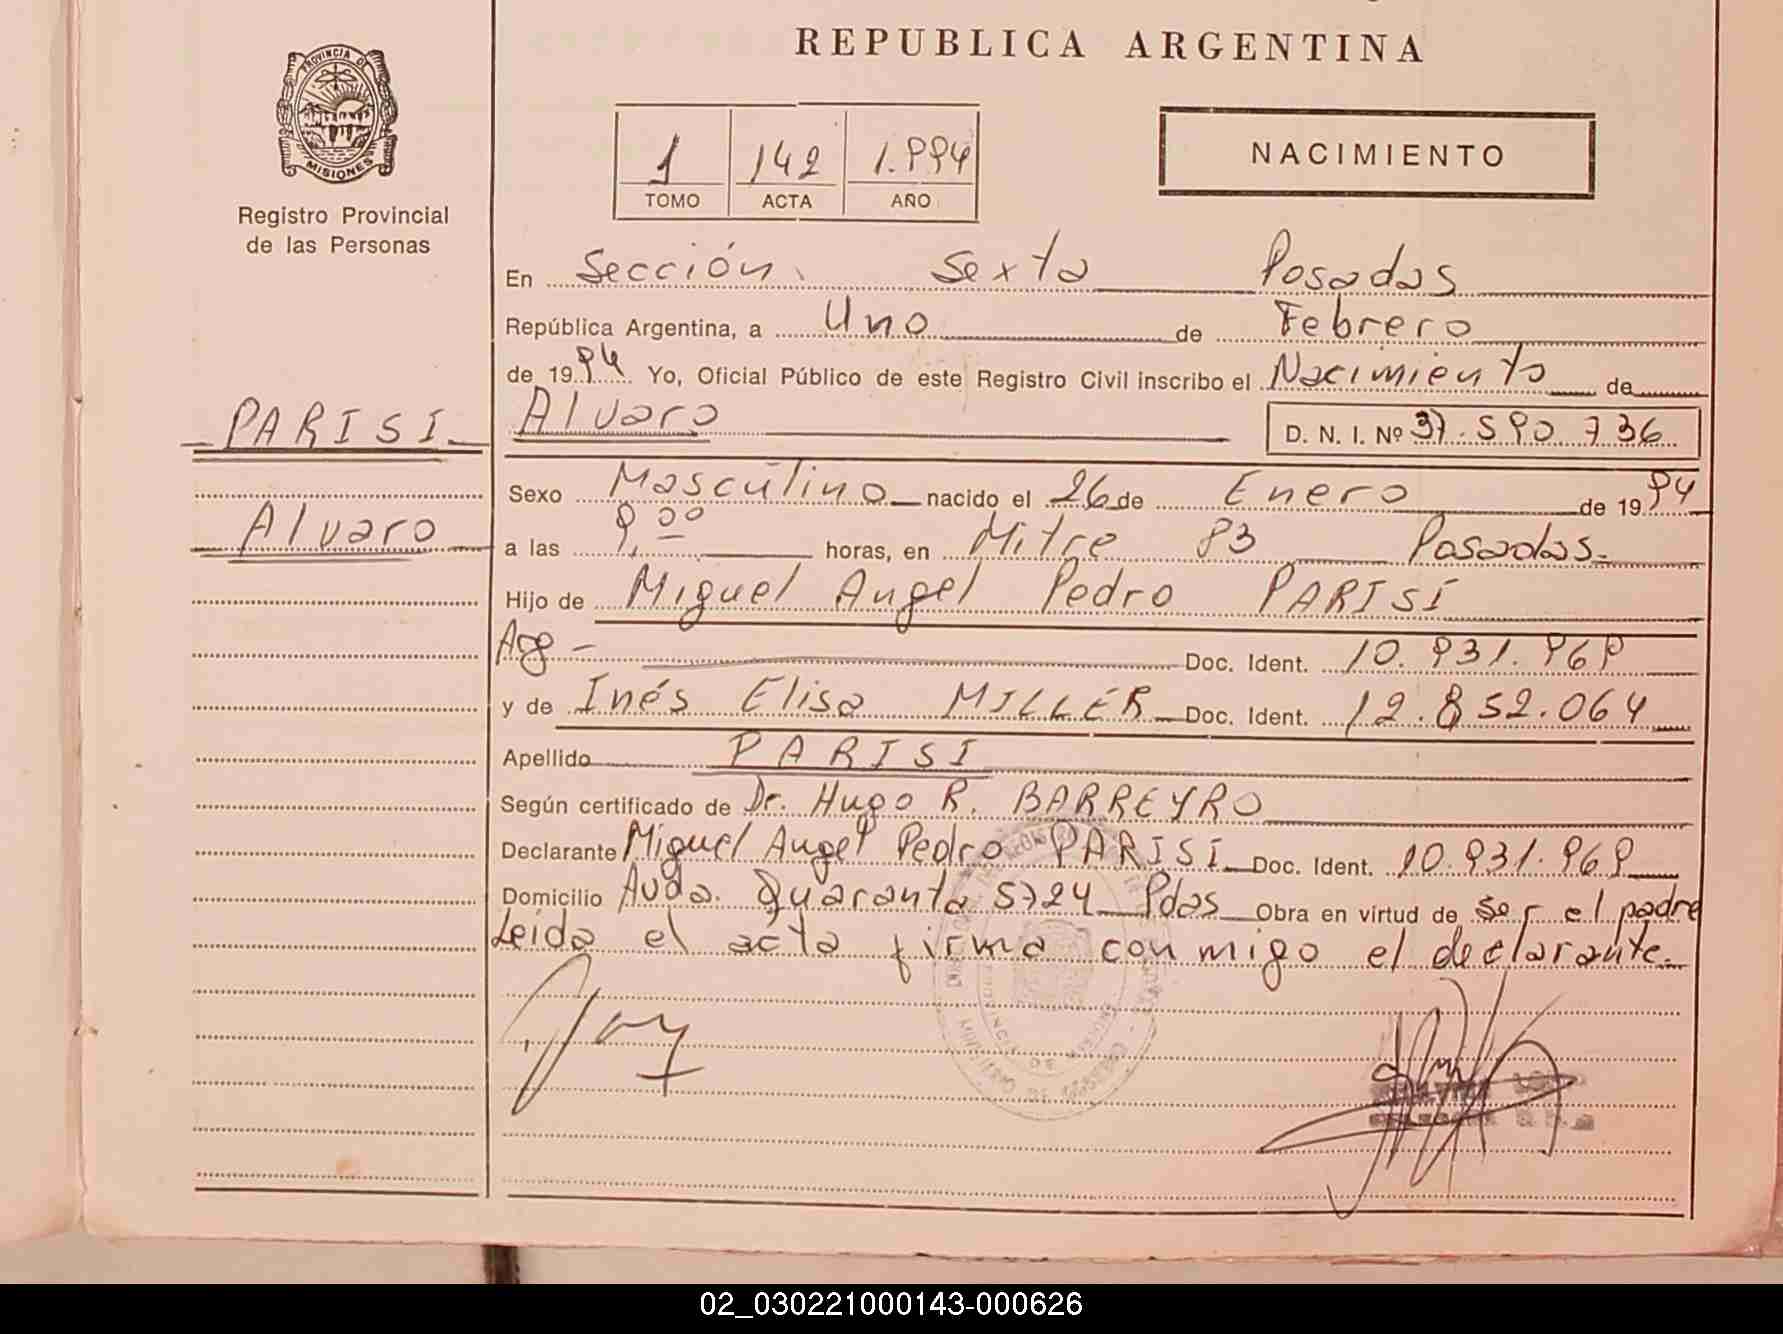 REPUBLICA ARGENTINA
PROVINCIA DE
MISIONES
Registro Provincial
de las Personas
1 142 1.994
TOMO ACTA AÑO
NACIMIENTO
En Sección Sexta Posadas
República Argentina, a Uno de Febrero
de 1994 Yo, Oficial Público de este Registro Civil inscribo el Nacimiento de
PARISI
Alvaro
D. N. I. Nº 37.590.736
Sexo Masculino nacido el 26 de Enero de 1994
Alvaro
a las 9,00 horas, en Mitre 93 Posadas.
Hijo de Miguel Angel Pedro PARISI
Arg - Doc. Ident. 10.931.969
y de Inés Elisa MILLER Doc. Ident. 12.852.064
Apellido PARISI
Según certificado de Dr. Hugo R. BARREYRO
Declarante Miguel Angel Pedro PARISI Doc. Ident. 10.931.969
Domicilio Avda. Quaranta 5724 Pdas Obra en virtud de Ser el padre
Leída el acta firma conmigo el declarante.
PROVINCIA DE
02_030221000143-000626